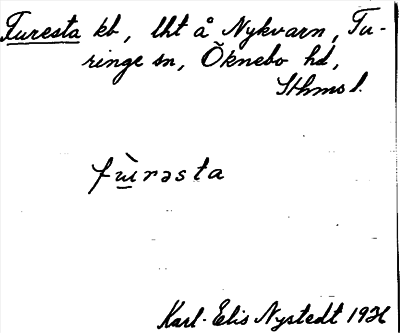 Furesta kb, lht å Nykvarn, Tu-
ringe sn, Öknebo hd,
Sthms l.
fùrəsta
Karl-Elis Nystedt